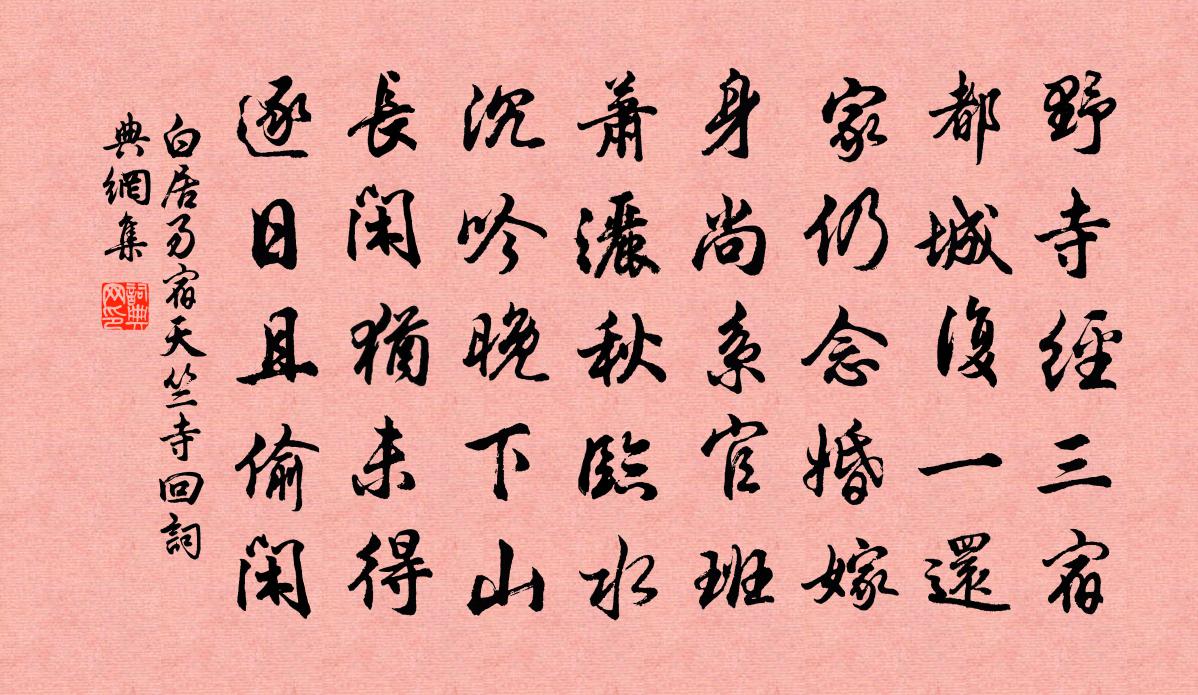 野寺經三宿
都城復一還
家仍念婚嫁
身尚系官班
蕭灑秋臨水
沉吟晚下山
長閑猶未得
逐日且偷閑
白居易宿天竺寺回詞
典網集
詞典
网印